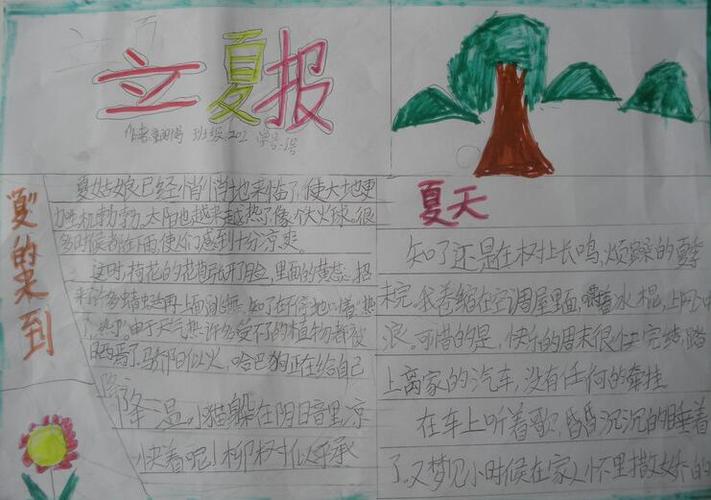 立夏报
作者 班级.202 学号:1号
"夏"的来到
夏姑娘已经悄悄地来临了,使大地更
加生机勃勃。太阳也越来越热了像个火球。很
多时候都在下雨,使人们感到十分凉爽
这时,荷花的花 开了脸,里面的黄蕊,招
来许多蜻蜓在上面 知了在不停地 着"热
了,热了"由于天气热许多受不了的植物都被
晒蔫了。骄阳似火,哈巴狗正在给自己
降温。小猫躲在阴日音里凉
快着呢!柳树似乎承
夏天
知了还是在树上长鸣,烦躁的 季
未完。我卷缩在空调屋里面, 着冰棍,上网冲
浪。可惜的是,快乐的周末很 完结,踏
上离家的汽车,没有任何的牵挂
在车上听着歌,昏昏沉沉的睡着
了。又梦见小时候在家人怀里撒娇的